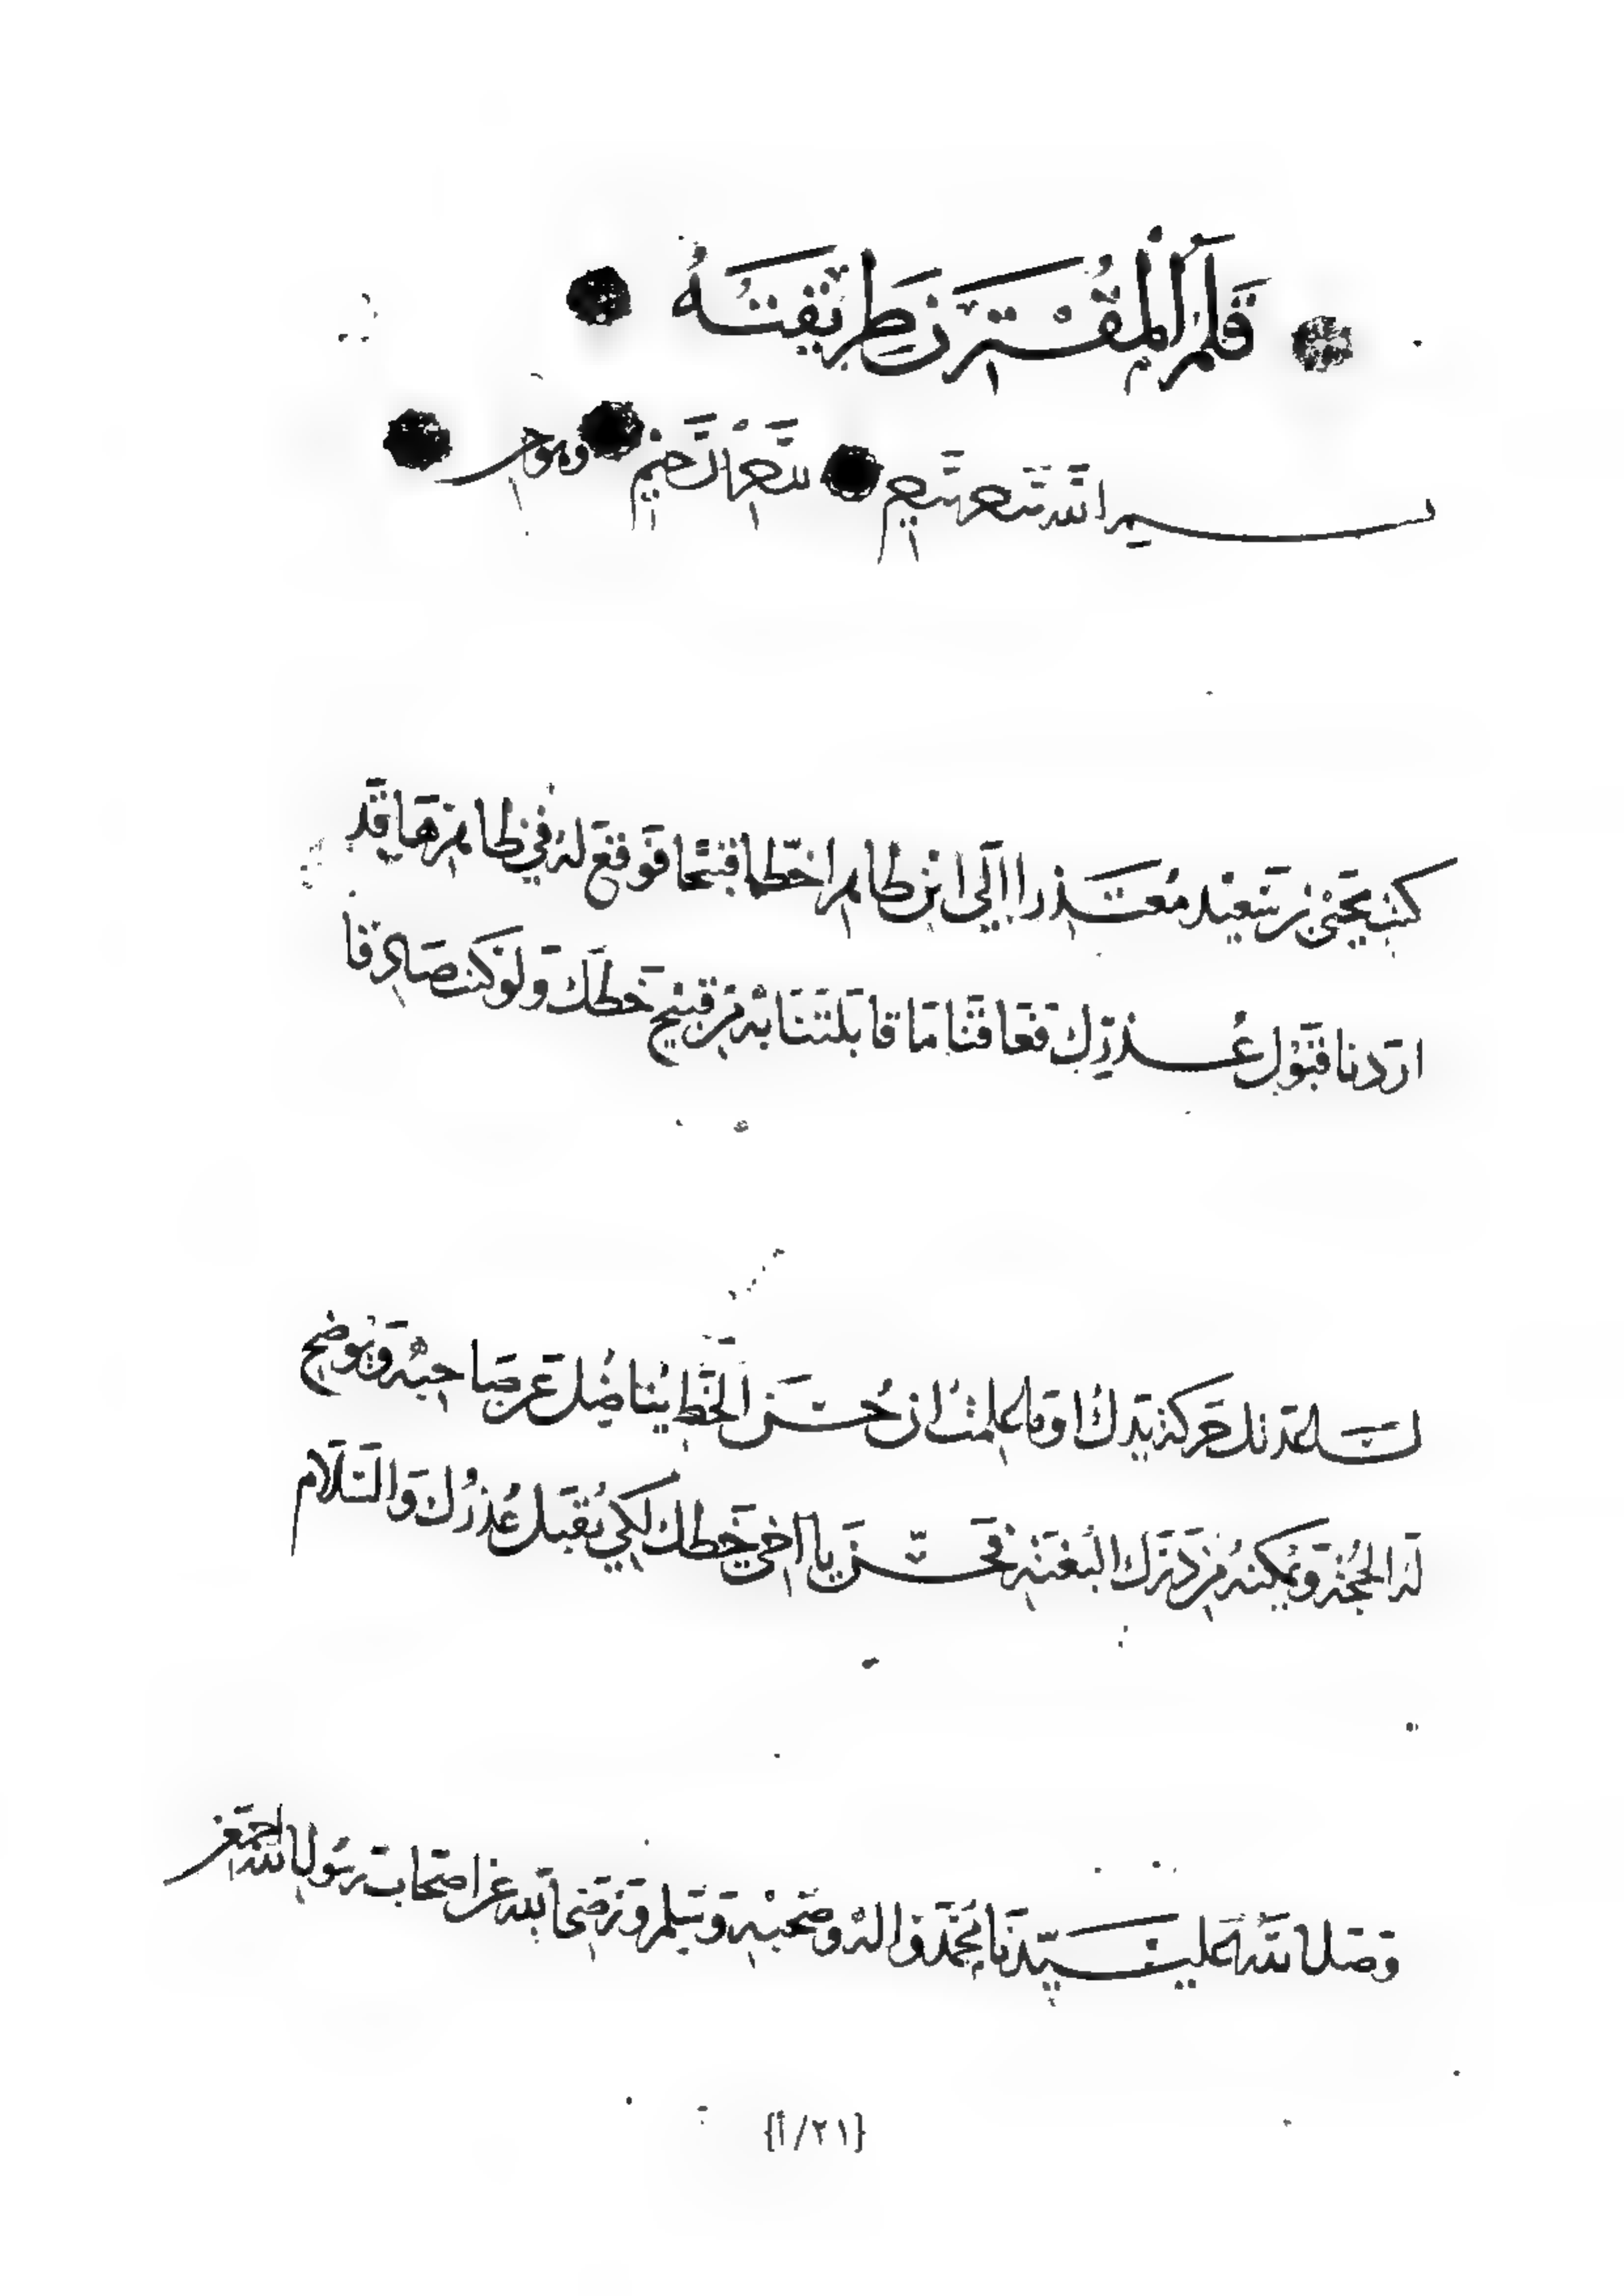 قلم المقترن طريقته
بسم الله
كتب يحيى بن سعيد معتذرا إلى ابن طاهر بخط قبيحا فوقع له في ظاهرها قد
اردنا قبول عذرك فعاقنا ما قابلتنا به من قبيح خطك ولو كنت صادقا
لساعدتك حركة يدك اوما علمت ان حسن الخط يناضل عن صاحبه ويوضح
له الحجة ويمكنه من درك البغية فحسن يا اخي خطك لكي يقبل عذرك والسلام
وصل الله على سيدنا محمد واله وصحبه وسلم ورضي الله عن اصحاب رسول الله اجمعين
{٢١/أ}